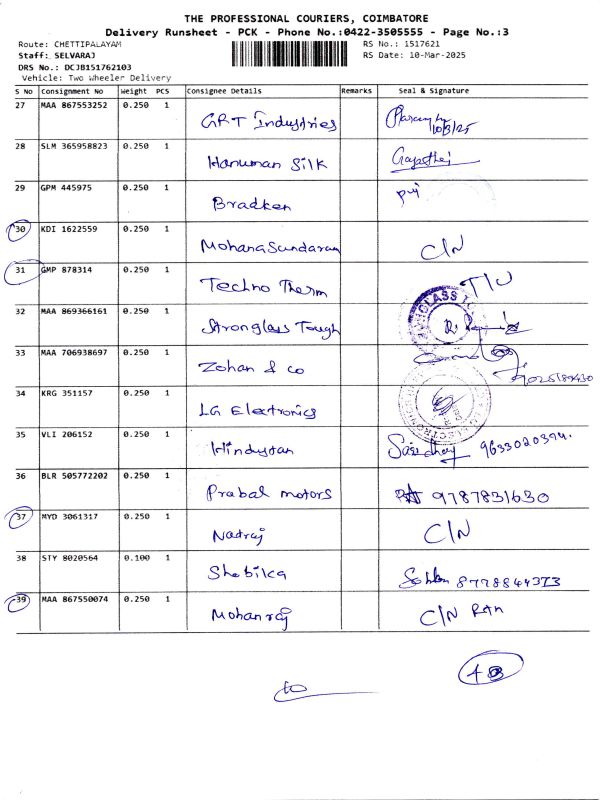 THE PROFESSIONAL COURIERS, COIMBATORE
Delivery Runsheet - PCK - Phone No.:0422-3505555 - Page No.:3
Route: CHETTIPALAYAM RS No.: 1517621
Staff: SELVARAJ RS Date: 10-Mar-2025
DRS No.: DCJB151762103
Vehicle: Two Wheeler Delivery
S No Consignment No Weight PCS Consignee Details Remarks Seal & Signature
27 MAA 867553252 0.250 1 GRT Industries 10/3/25
28 SLM 365958823 0.250 1 Hanuman Silk
29 GPM 445975 0.250 1 Bradken
30 KDI 1622559 0.250 1 Mohanasundaram C/N
31 GMP 878314 0.250 1 Techno Therm T/U
32 MAA 869366161 0.250 1 Stronglass Tough
33 MAA 706938697 0.250 1 Zohan & co
34 KRG 351157 0.250 1 LG Electronics
35 VLI 206152 0.250 1 Hindustan 9633020394.
36 BLR 505772202 0.250 1 Prabal motors 9787831630
37 MYD 3061317 0.250 1 Natraj C/N
38 STY 8020564 0.100 1 Shebilka 8778844373
39 MAA 867550074 0.250 1 Mohanraj C/N RAM